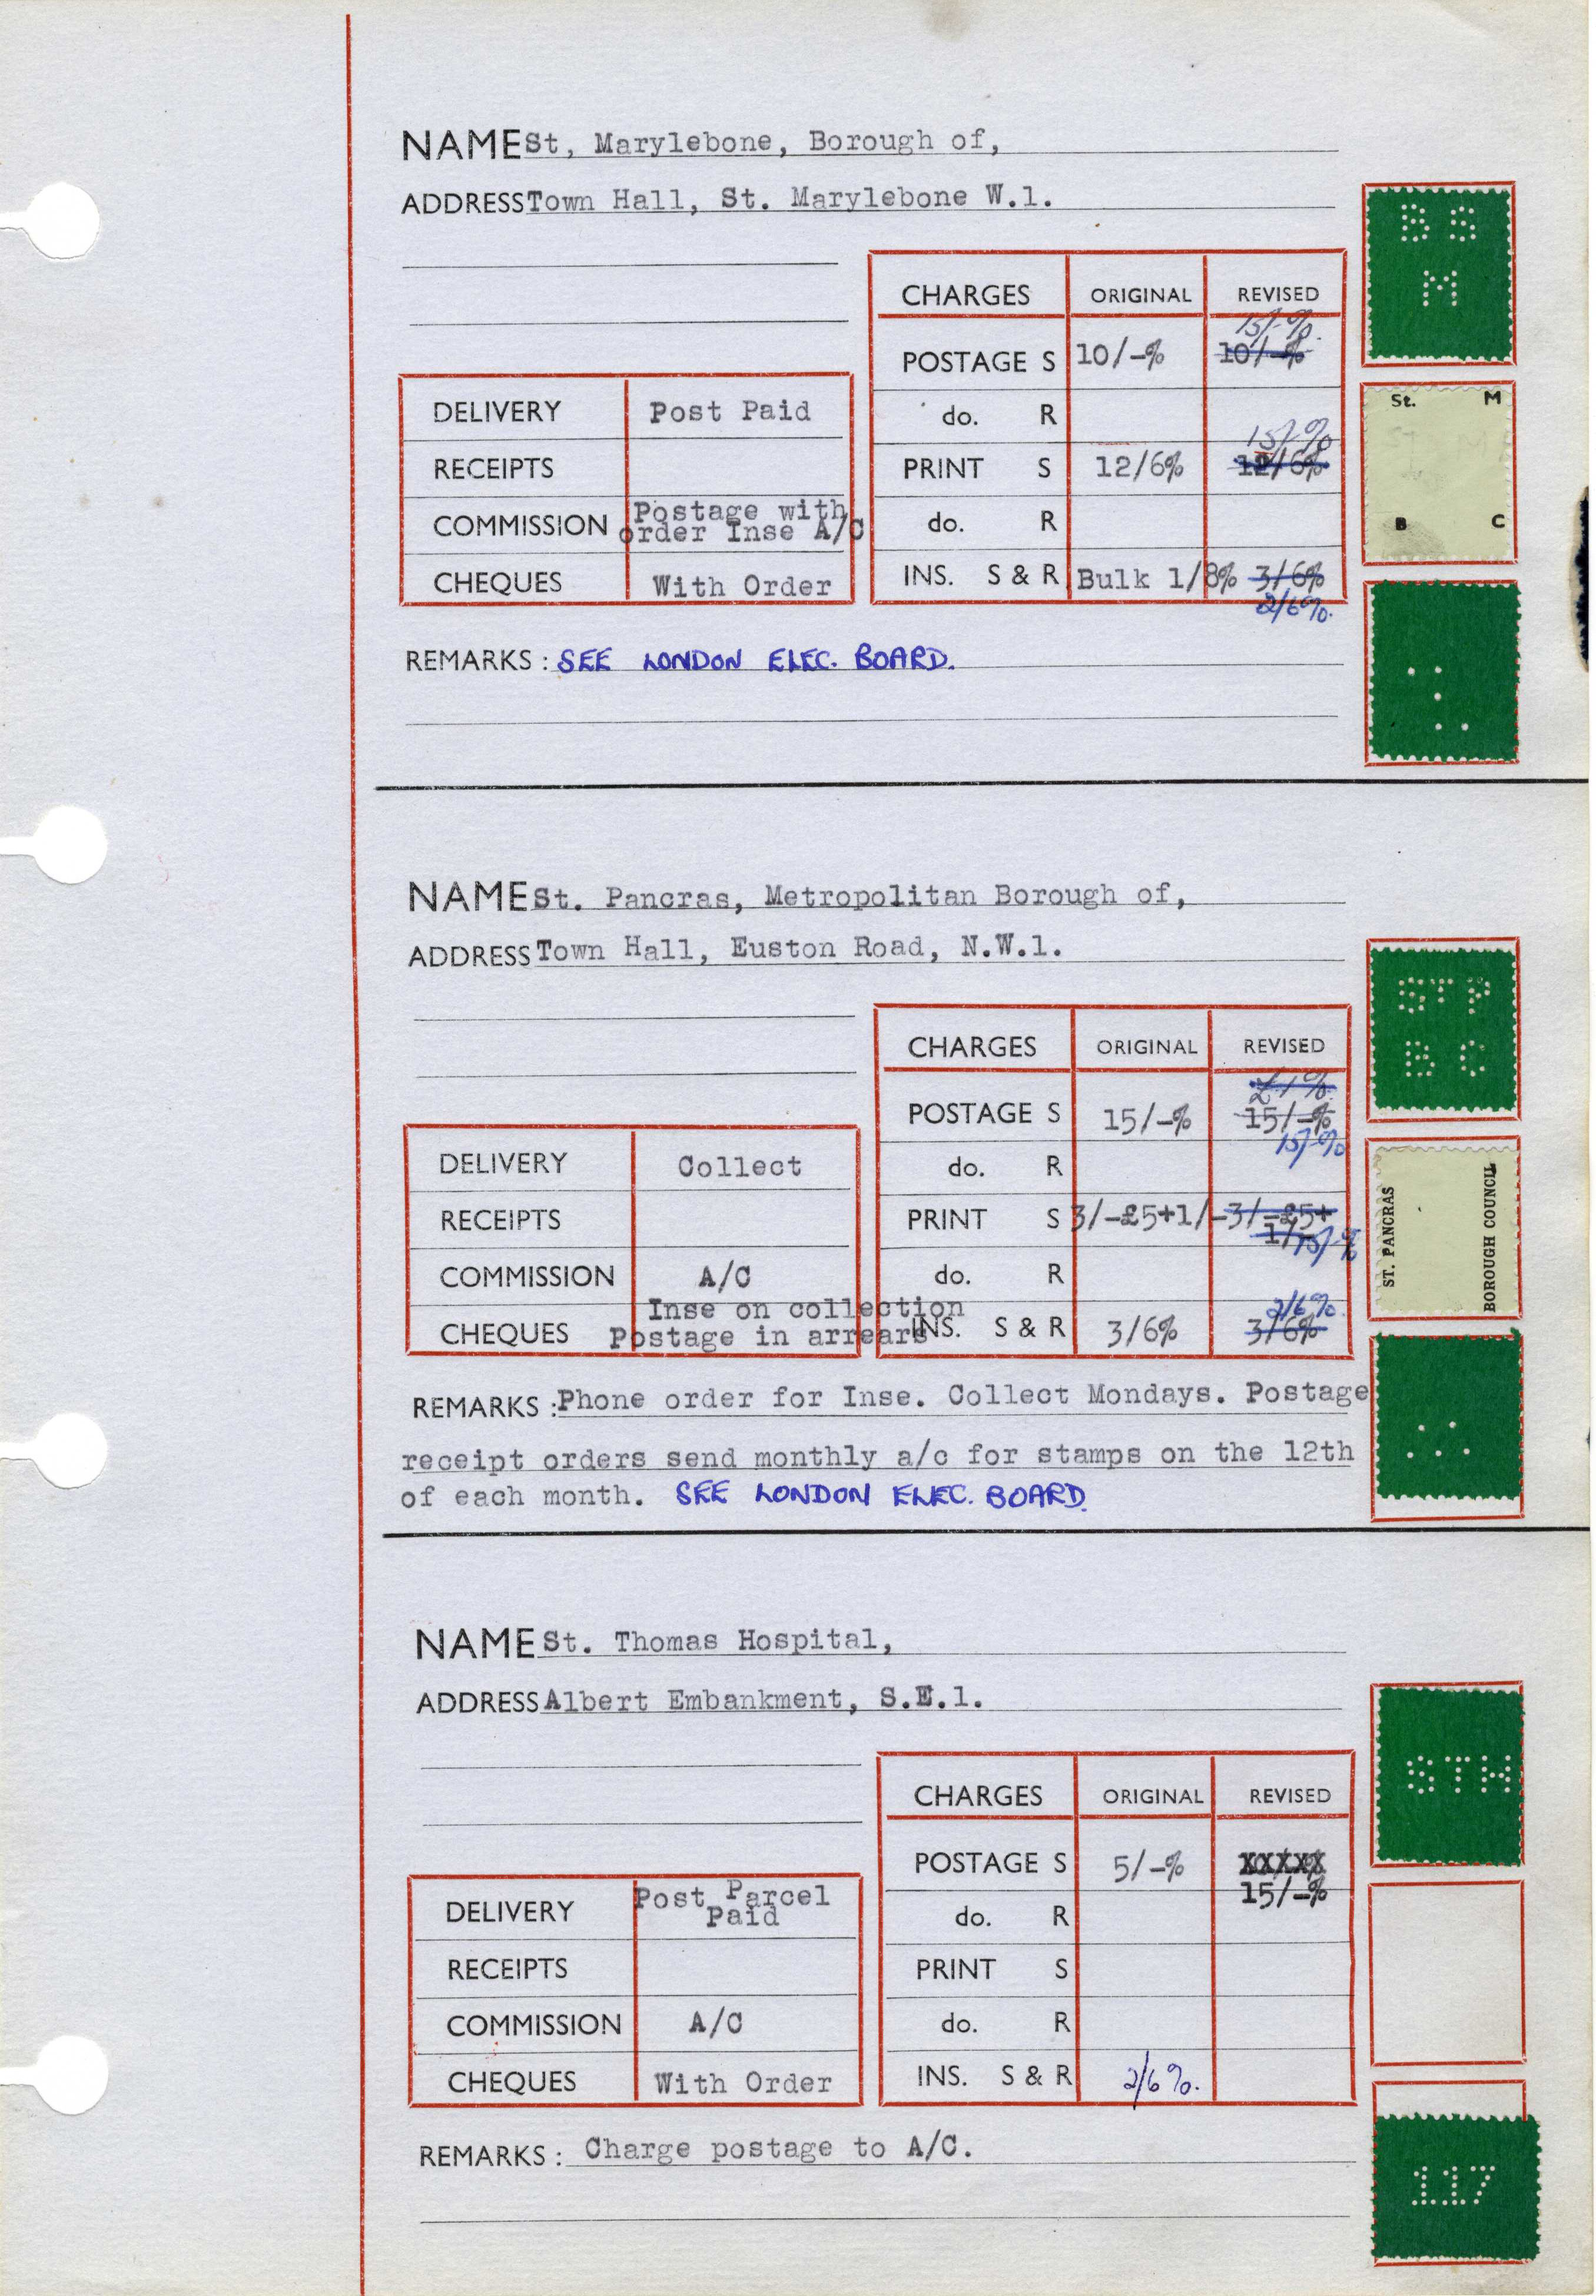 NAME St, Marylebone, Borough of,
ADDRESS Town Hall, St. Marylebone W.1.
B S
M
CHARGES ORIGINAL REVISED
15/-%.
POSTAGE S 10/-% 10/-%
do. R
15/-%
PRINT S 12/6% 12/6%
do. R
INS. S & R Bulk 1/8% 3/6%
2/6%.
DELIVERY Post Paid
RECEIPTS
COMMISSION Postage with
order Inse A/C
CHEQUES With Order
St. M
B C
REMARKS : SEE LONDON ELEC. BOARD.
NAME St. Pancras, Metropolitan Borough of,
ADDRESS Town Hall, Euston Road, N.W.1.
STP
BC
CHARGES ORIGINAL REVISED
£1%.
POSTAGE S 15/-% 15/-%
15/-%
do. R
PRINT S 3/-£5+1/- 3/-£5+
1/- 15/-%
do. R
2/6%.
INS. S & R 3/6% 3/6%
DELIVERY Collect
RECEIPTS
COMMISSION A/C
Inse on collection
CHEQUES Postage in arrears
ST. PANCRAS
BOROUGH COUNCIL
REMARKS : Phone order for Inse. Collect Mondays. Postage
receipt orders send monthly a/c for stamps on the 12th
of each month. SEE LONDON ELEC. BOARD.
NAME St. Thomas Hospital,
ADDRESS Albert Embankment, S.E.1.
STH
CHARGES ORIGINAL REVISED
POSTAGE S 5/-% XXXXX
15/-%
do. R
PRINT S
do. R
INS. S & R 2/6%.
DELIVERY Post Parcel
Paid
RECEIPTS
COMMISSION A/C
CHEQUES With Order
REMARKS : Charge postage to A/C.
117